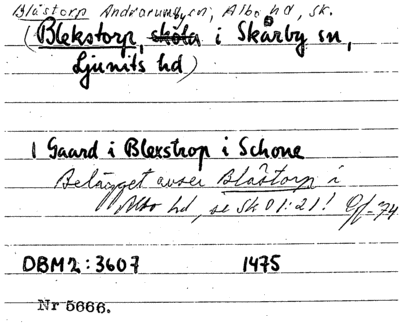 Blåstorp Andrarums sn, Albo hd, Sk.
(Blekstorp, skola i Skårby sn,
Ljunits hd)
1 Gaard i Blexstrop i Schone
Belägget avser Blåstorp i
Albo hd, se Sk 01:21! Of-74
DBM2:3607 1475
Nr 5666.